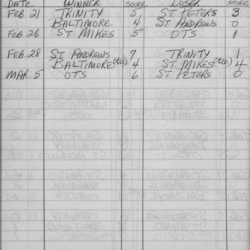 DATE WINNER SCORE LOSER SCORE
FEB 21 TRINITY 5 ST PETERS 3
BALTIMORE 4 ST ANDREWS 0
FEB 26 ST MIKES 5 OTS 1
FEB 28 ST ANDREWS 7 TRINITY 1
BALTIMORE (tie) 4 ST MIKES (tie) 4
MAR 5 OTS 6 ST PETERS 0